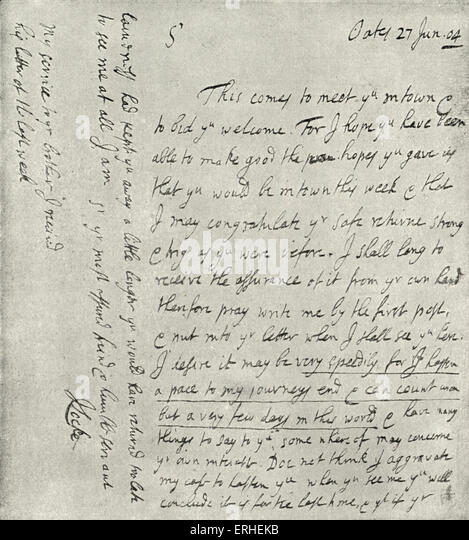 Oates 27 Jun. 04
S
This comes to meet yu in town &
to bid yu welcome. For I hope yu have been
able to make good the hopes yu gave us
that yu would be in town this week & that
I may congratulate yr safe returne strong
& as yu were before. I shall long to
receive the assurance of it from yr own hand
therefore pray write me by the first post,
& put into yr letter when I shall see yu here.
I desire it may be very speedily, for I hasten
a pace to my journeys end & can count upon
but a very few days in this world & have many
things to say to yu some where of may concerne
yr own interest. Doe not think I aggravate
my case to hasten yu when yu see me yu will
conclude it is for the last home, & yt if yr
had kept yu away a little longer yu would have returned too late
to see me at all. I am
Sr yr most affectionate friend & humble servant
JLocke
My service to yr brother I received
his letter of the last week
alamy
www.alamy.com - ERHEKB